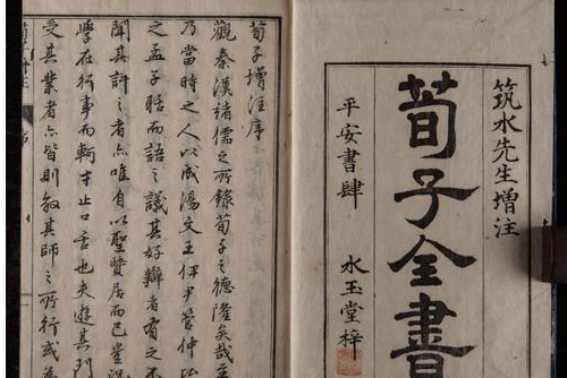 筑水先生增注
荀子全書
平安書肆
水玉堂梓
荀子增注序
觀秦漢諸儒之所錄荀子之德隆矣哉至
乃當時之人以咸湯文王伊尹管仲
之孟子聒而語之議其好辯者有之不
聞其訐之者亦唯自以聖賢居而已豈
學在行事而輒才止口舌也夫遊其門
受其業者亦皆則效其師之所行或為